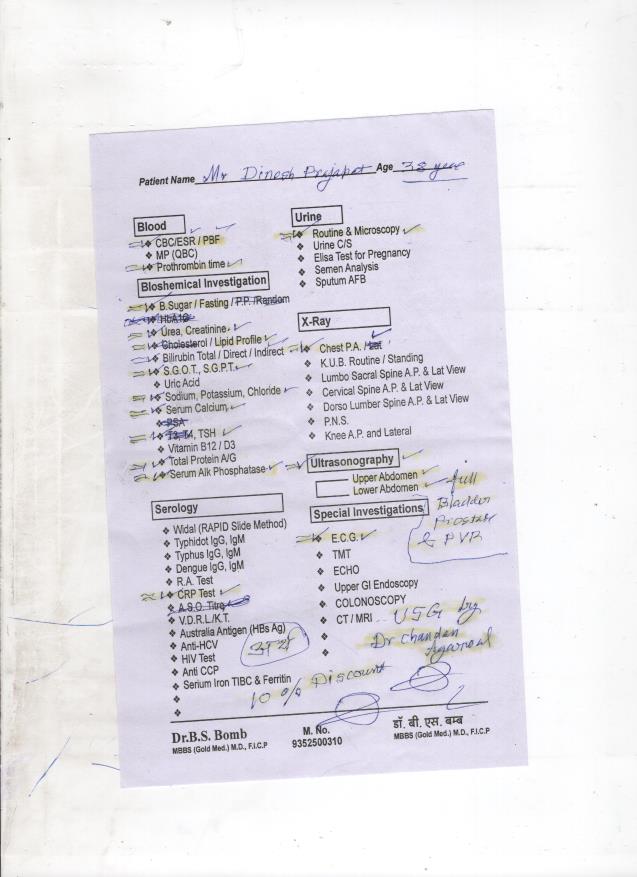 Patient Name Mr Dinesh Prajapat Age 38 year
Blood
❖ CBC/ESR / PBF
❖ MP (QBC)
❖ Prothrombin time
Bloshemical Investigation
❖ B.Sugar / Fasting / P.P. /Random
❖ HbA1c
❖ Urea, Creatinine
❖ Cholesterol / Lipid Profile
❖ Bilirubin Total / Direct / Indirect
❖ S.G.O.T., S.G.P.T.
❖ Uric Acid
❖ Sodium, Potassium, Chloride
❖ Serum Calcium,
❖ PSA
❖ T3, T4, TSH
❖ Vitamin B12 / D3
❖ Total Protein A/G
❖ Serum Alk Phosphatase
Serology
❖ Widal (RAPID Slide Method)
❖ Typhidot IgG, IgM
❖ Typhus IgG, IgM
❖ Dengue IgG, IgM
❖ R.A. Test
❖ CRP Test
❖ A.S.O. Titre
❖ V.D.R.L./K.T.
❖ Australia Antigen (HBs Ag)
❖ Anti-HCV
❖ HIV Test
❖ Anti CCP
❖ Serium Iron TIBC & Ferritin
Urine
❖ Routine & Microscopy
❖ Urine C/S
❖ Elisa Test for Pregnancy
❖ Semen Analysis
❖ Sputum AFB
X-Ray
❖ Chest P.A. / Lat
❖ K.U.B. Routine / Standing
❖ Lumbo Sacral Spine A.P. & Lat View
❖ Cervical Spine A.P. & Lat View
❖ Dorso Lumber Spine A.P. & Lat View
❖ P.N.S.
❖ Knee A.P. and Lateral
Ultrasonography
Upper Abdomen
Lower Abdomen
full
Bladder
Prostate
& PVR
Special Investigations
❖ E.C.G.
❖ TMT
❖ ECHO
❖ Upper GI Endoscopy
❖ COLONOSCOPY
❖ CT / MRI
USG by
Dr Chandan
Agarwal
10 % Discount
Dr.B.S. Bomb
MBBS (Gold Med.) M.D., F.I.C.P
M. No.
9352500310
डॉ. बी. एस. बम्ब
MBBS (Gold Med.) M.D., F.I.C.P